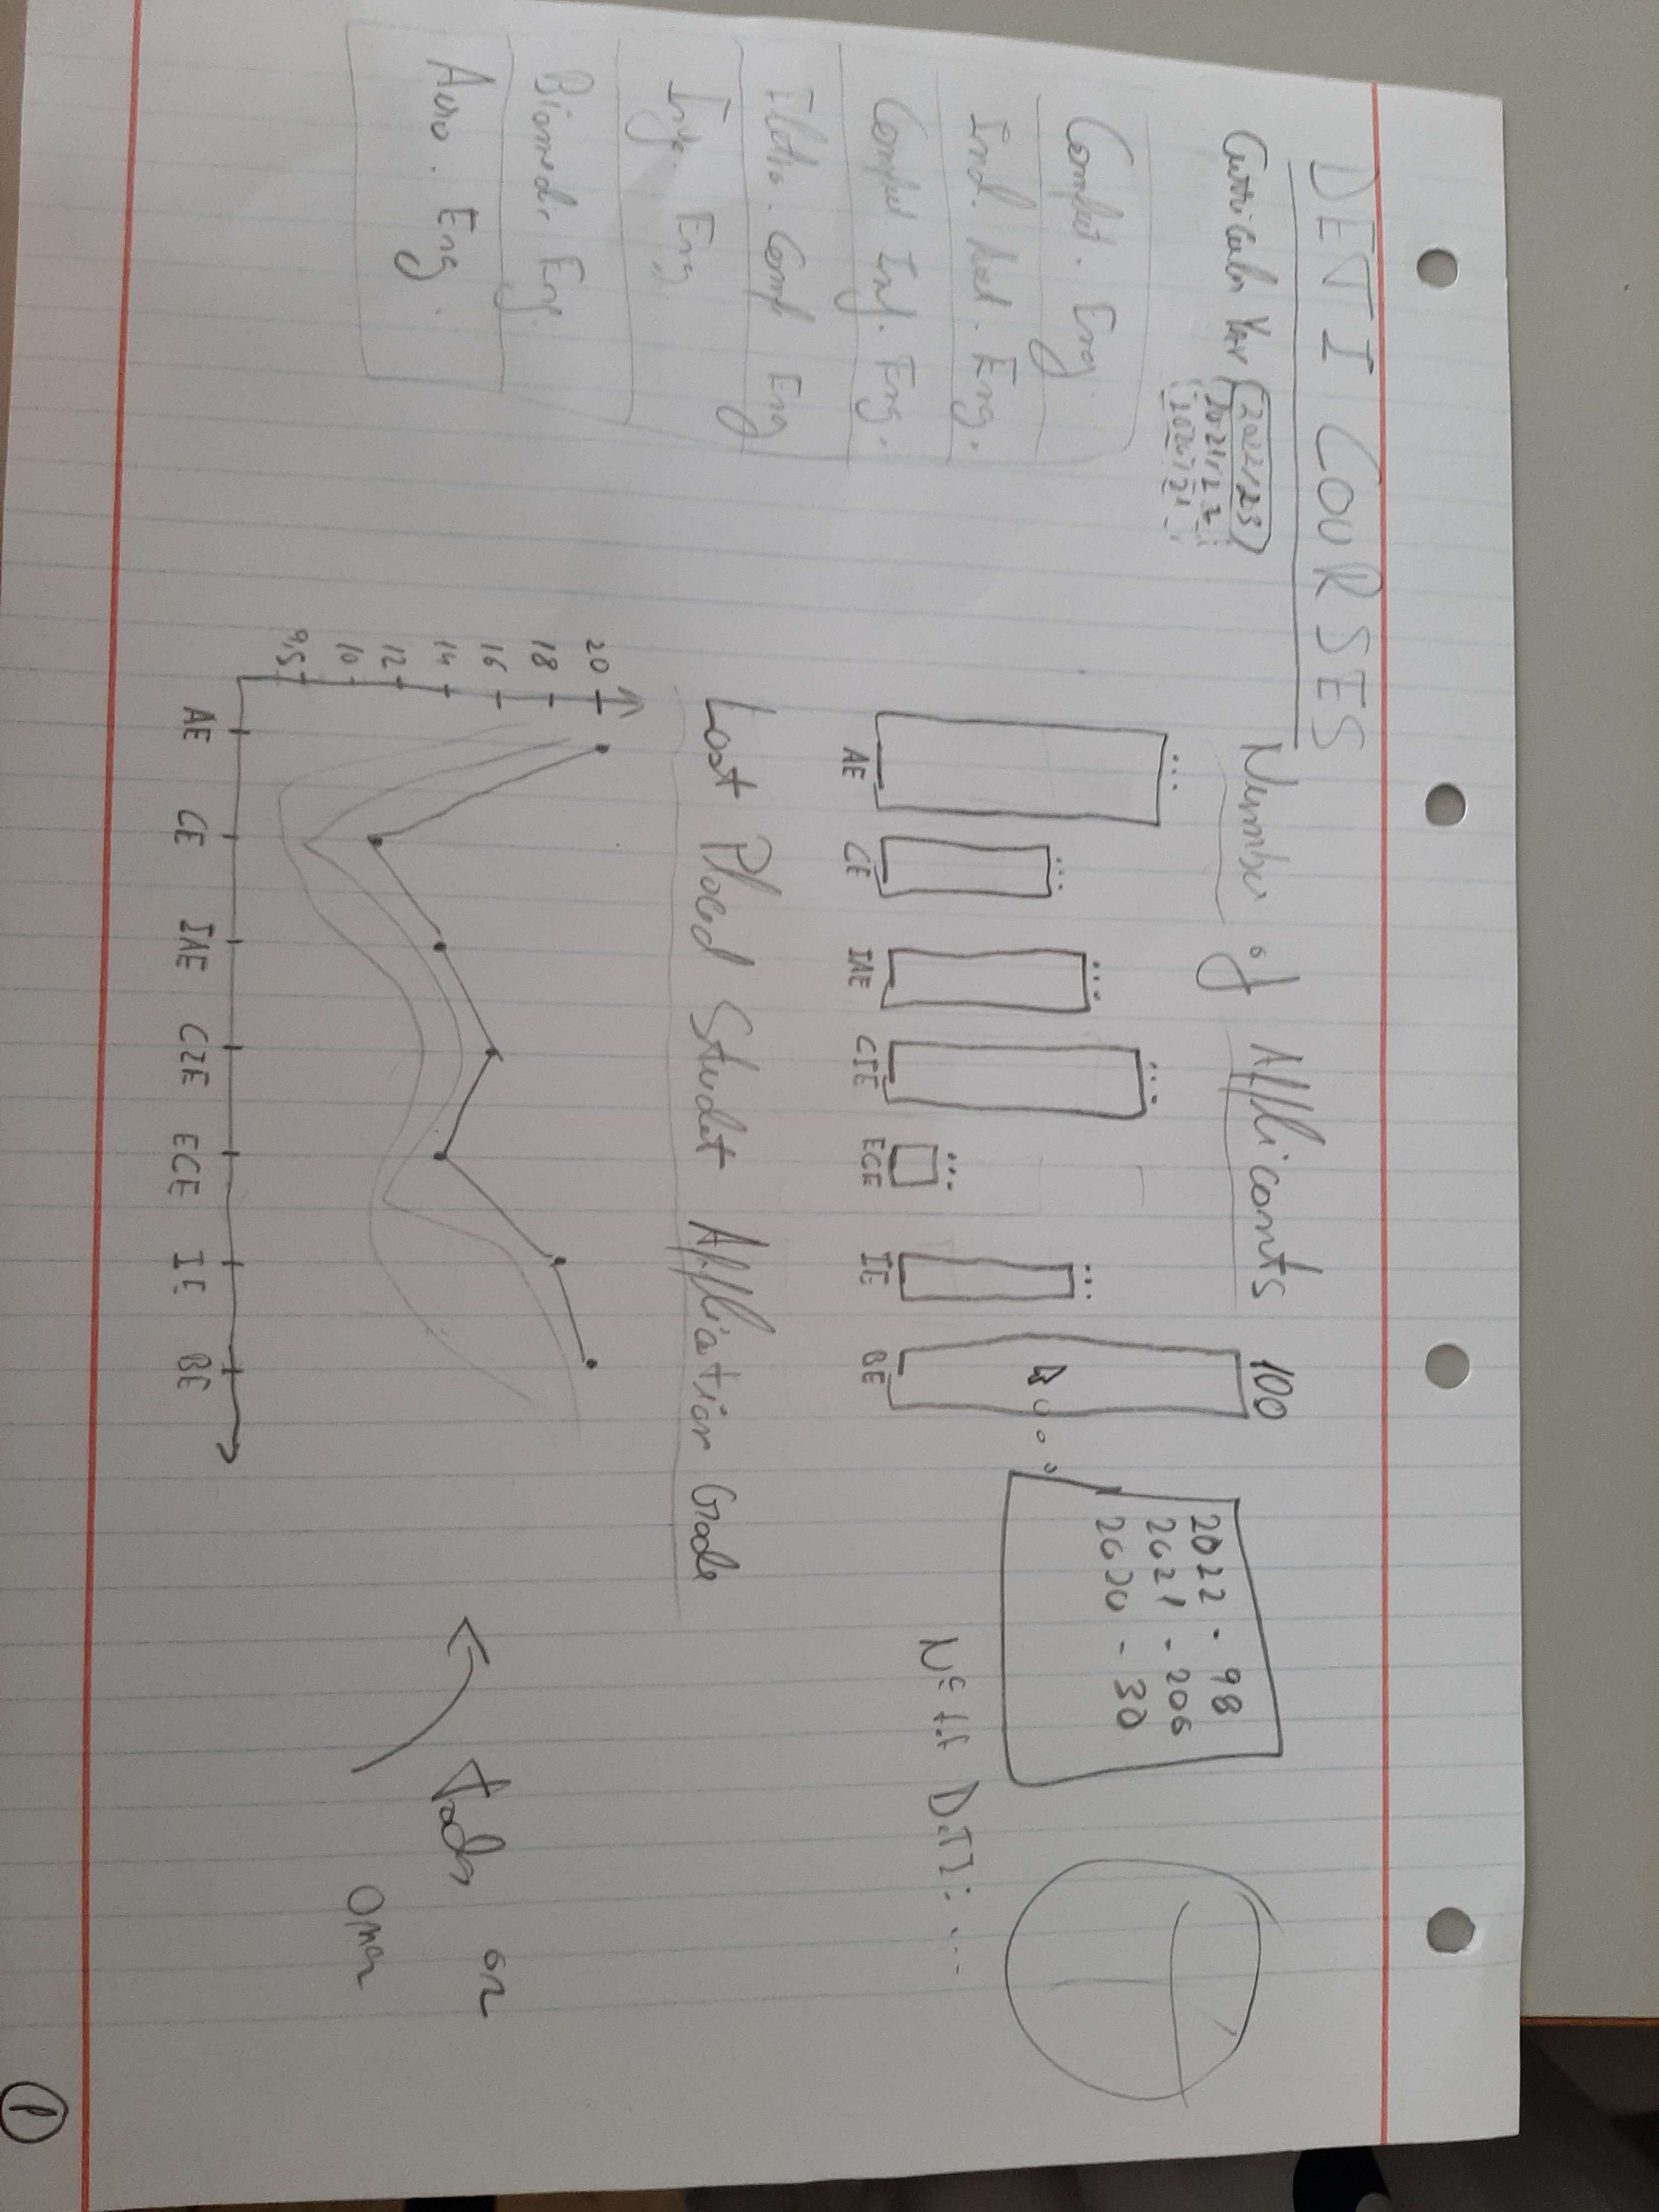 DETI COURSES
Curricular Year 2022/23
2021/22
2020/21
Comput. Eng.
Ind. Eng.
Comput. Inf. Eng.
Eletro. Comp Eng
Eng.
Biomedi. Eng.
Aero. Eng.
Number of Applicants
100
...
...
...
...
...
...
AE CE IAE CIE ECE IE BE
2022 - 98
2021 - 206
2020 - 30
DETI: ...
Last Placed Studet Application Grade
20
18
16
14
12
10
9,5
AE CE IAE CIE ECE IE BE
1